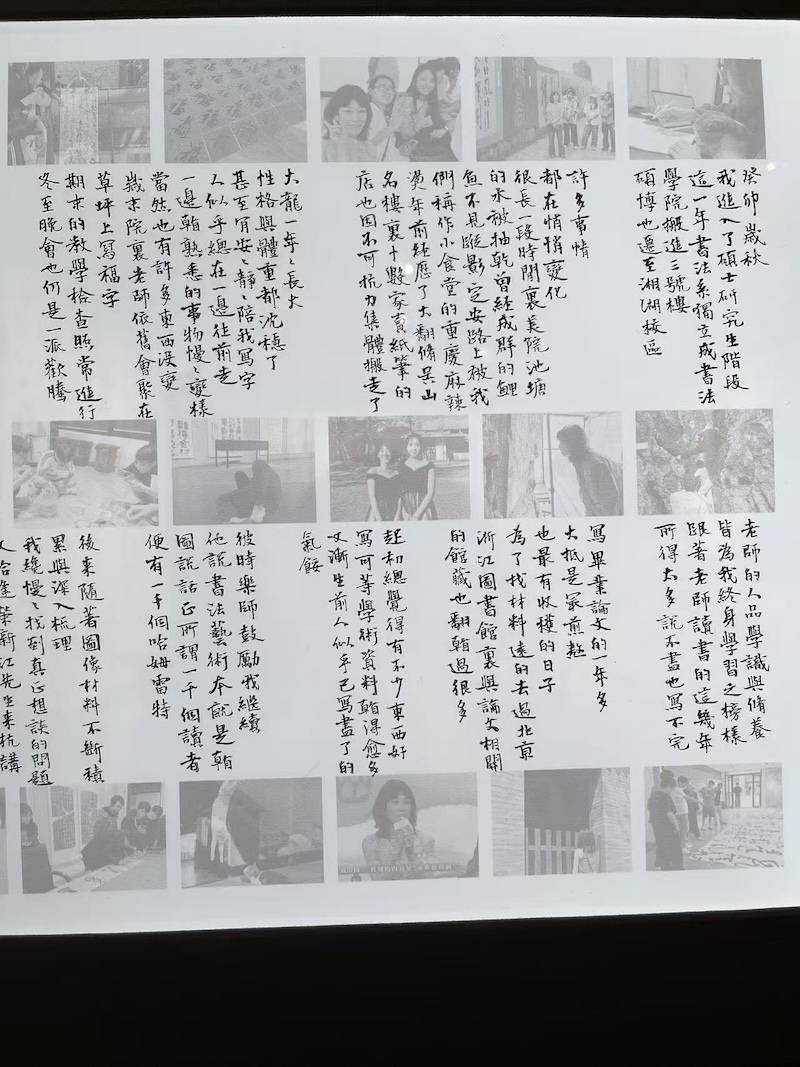 癸卯歲秋
我進入了碩士研究生階段
這一年書法系獨立成書法
學院搬進三號樓
碩博也遷至湘湖校區
許多事情
都在悄悄變化
很長一段時間裏美院池塘
的水被抽乾曾經成群的鯉
魚不見蹤影定安路上被我
們稱作小食堂的重慶麻辣
燙年前經歷了大翻修吳山
名樓裏十數家賣紙筆的
店也因不可抗力集體搬走了
大龍一年々長大
性格與體重都沈穩了
甚至肯安々靜々陪我寫字
人似乎總在一邊往前走
一邊翰熟悉的事物慢々變樣
當然也有許多東西沒變
歲末院裏老師依舊會聚在
草坪上寫福字
期末的教學檢查照常進行
冬至晚會也仍是一派歡騰
老師的人品學識與脩養
皆為我終身學習之榜樣
跟著老師讀書的這幾年
所得太多說不盡也寫不完
寫畢業論文的一年多
大抵是最煎熬
也最有收穫的日子
為了找材料遠的去過北京
浙江圖書館裏與論文相關
的館藏也翻翰過很多
起初總覺得有不少東西好
寫可等學術資料翰得愈多
又漸生前人似乎已寫盡了的
氣餒
彼時樂師鼓勵我繼續
他說書法藝術本就是翰
圖說話正所謂一千個讀者
便有一千個哈姆雷特
後來隨著圖像材料不斷積
累與深入梳理
我纔慢々找到真正想談的問題
又合逢榮新江先生來杭講